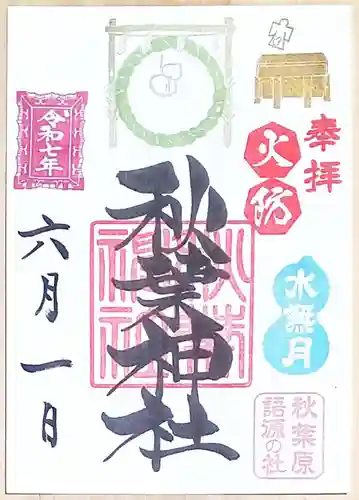 奉拝
火防
水無月
秋葉原
語源の社
秋葉神社
秋葉神社
令和七年
六月一日